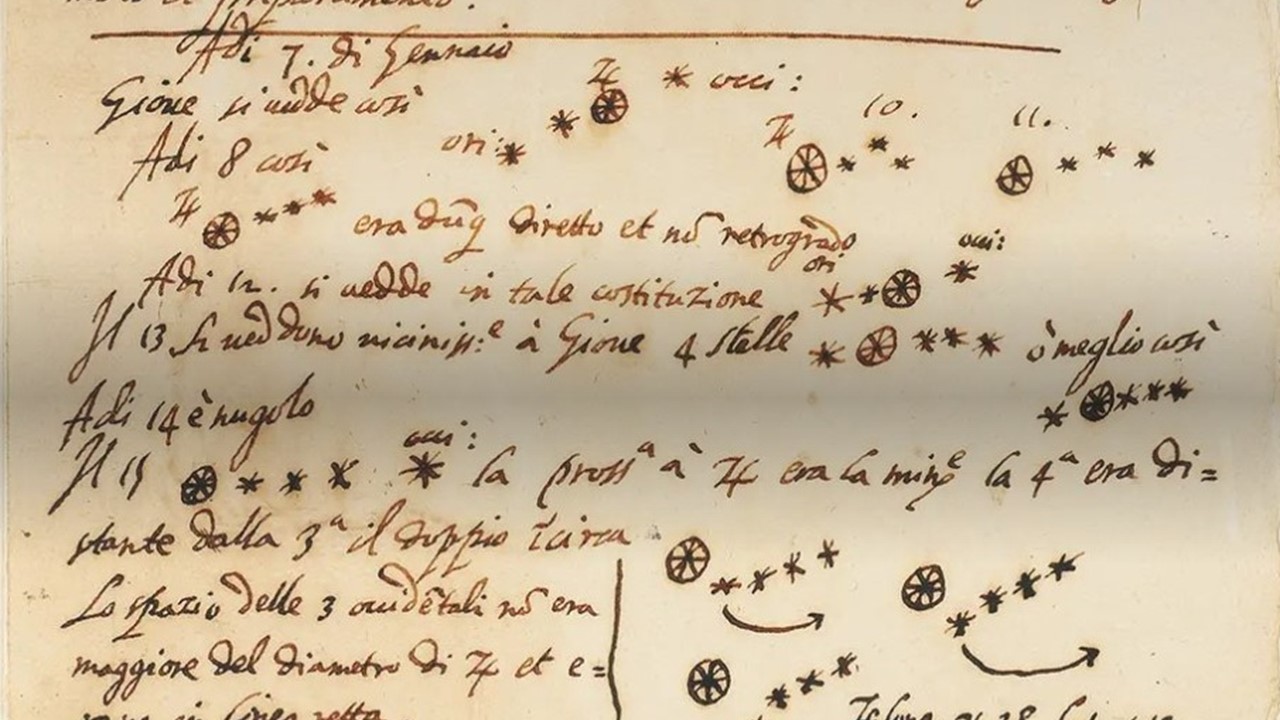 Adi 7. di Gennaio
Gioue si uedde così
ori: ♃ occi:
10. 11.
Adi 8 così
♃
♃ era dũq diretto et nõ retrogrado
Adi 12. si uedde in tale costituzione ori occi:
Il 13 si ueddono uiciniss:e à Gioue 4 stelle ò meglio così
Adi 14 è nugolo
Il 15 occi: la pross.a à ♃ era la min.e la 4a era di=
stante dalla 3a il doppio ĩ circa
Lo spazio delle 3 occidẽtali nõ era
maggiore del diametro di ♃ et e=
in linea retta